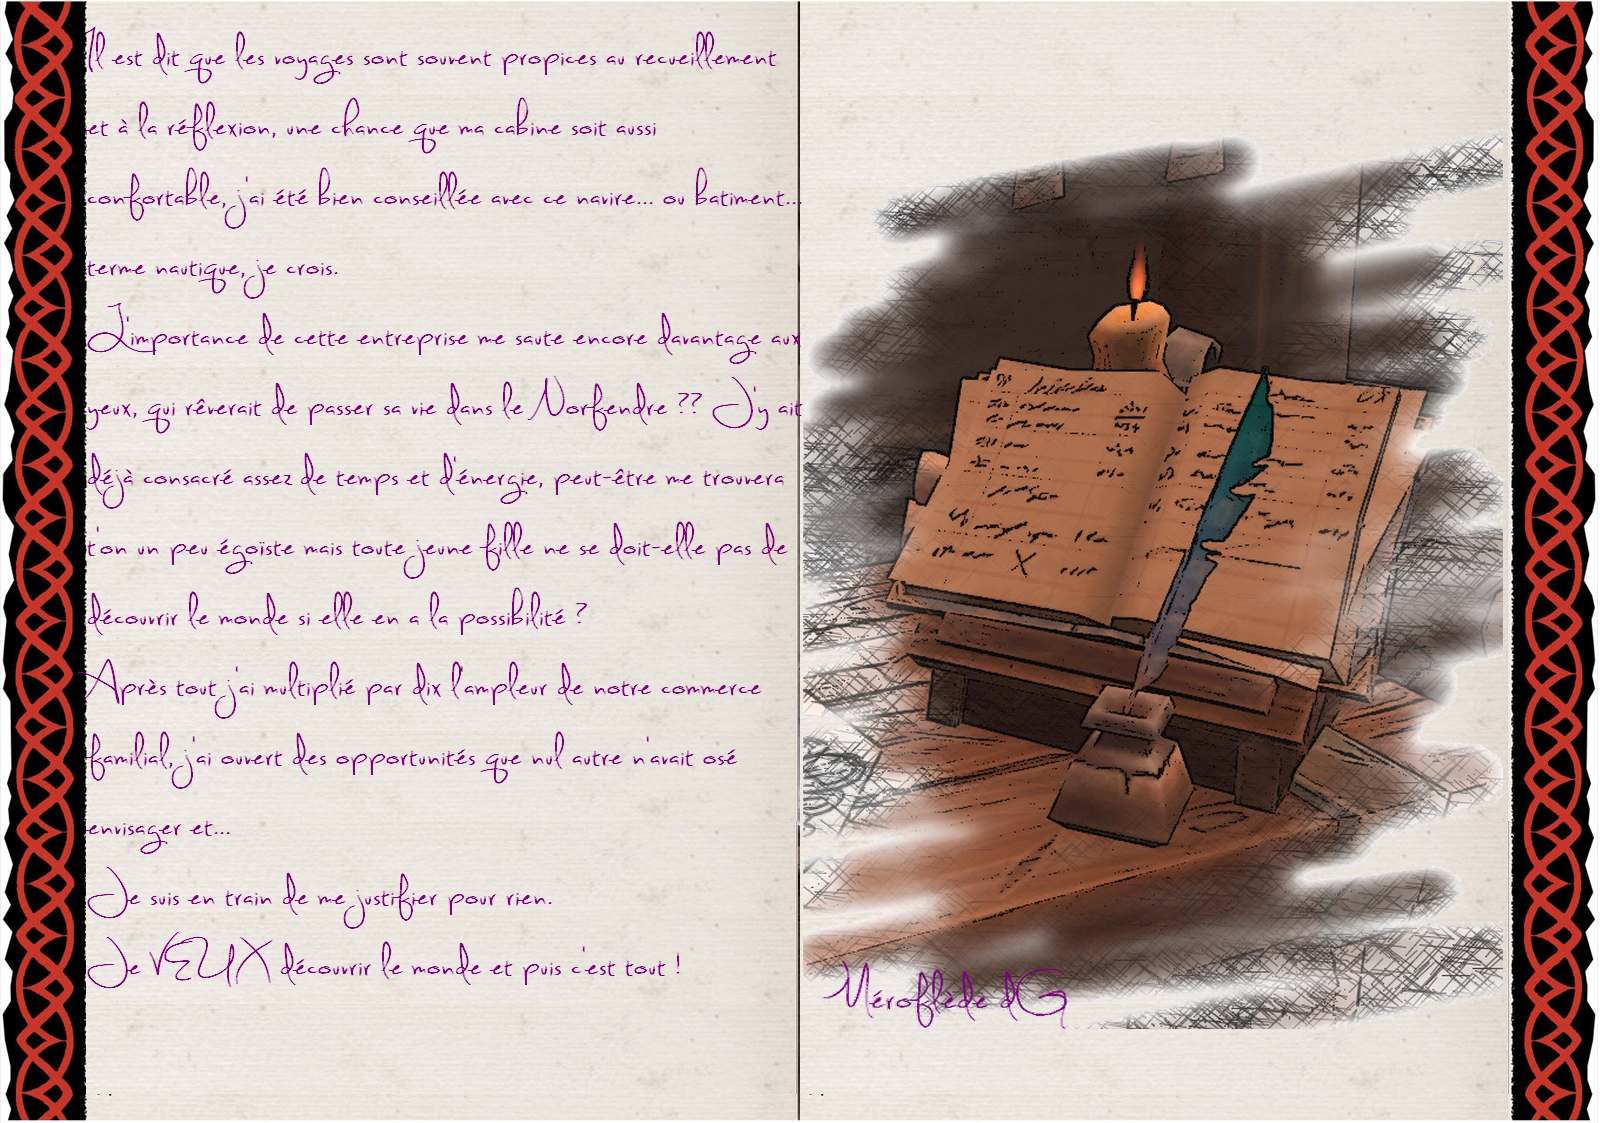 Il est dit que les voyages sont souvent propices au recueillement
et à la réflexion, une chance que ma cabine soit aussi
confortable, j'ai été bien conseillée avec ce navire... ou batiment...
terme nautique, je crois.
L'importance de cette entreprise me saute encore davantage aux
yeux, qui rêverait de passer sa vie dans le Norfendre ?? J'y ait
déjà consacré assez de temps et d'énergie, peut-être me trouvera
t'on un peu égoïste mais toute jeune fille ne se doit-elle pas de
découvrir le monde si elle en a la possibilité ?
Après tout j'ai multiplié par dix l'ampleur de notre commerce
familial, j'ai ouvert des opportunités que nul autre n'avait osé
envisager et...
Je suis en train de me justifier pour rien.
Je VEUX découvrir le monde et puis c'est tout !
Méroflède dG